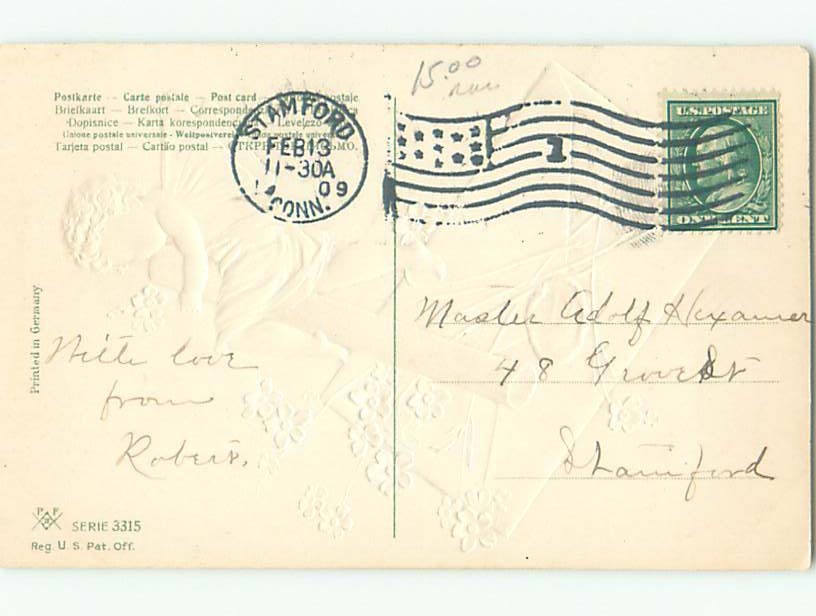 15.00
Postkarte — Carte postale — Post card
Briefkaart — Brefkort — Correspondenz
Dopisnice — Karta korespondenc Levelező
Unione postale universale - Weltpostverein postale univer
Tarjeta postal — Cartão postal — ОТКРЫТОЕ ПИСЬМО.
STAMFORD
FEB 13
11-30A
09
CONN.
1
U.S. POSTAGE
ONE CENT
Printed in Germany
With love
from
Robert.
Master Adolf
48 Grove St
Stamford
P F
B
SERIE 3315
Reg. U. S. Pat. Off.